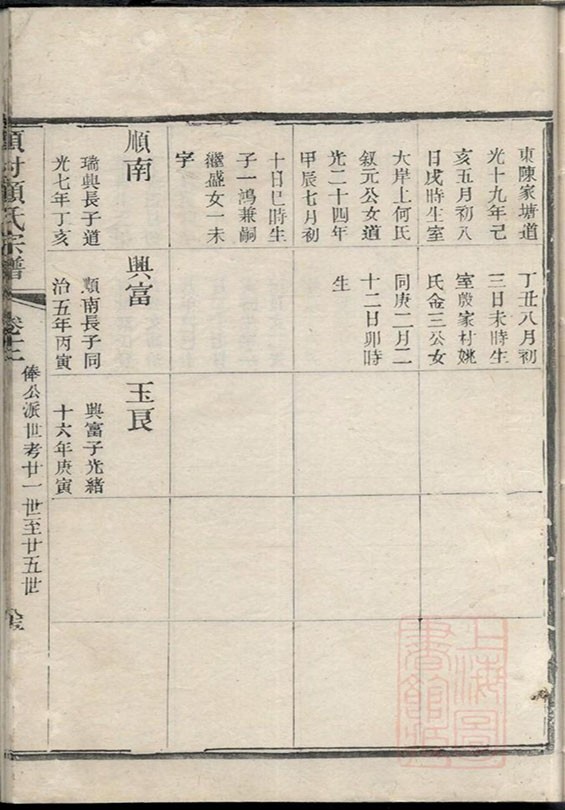 東陳家塘道
光十九年己
亥五月初八
日戌時生室
大岸上何氏
叙元公女道
光二十四年
甲辰七月初
十日巳時生
子一鴻兼嗣
繼盛女一未
字
丁丑八月初
三日未時生
室殷家村姚
氏金三公女
同庚二月二
十二日卯時
生
順南
瑞興長子道
光七年丁亥
興富
順南長子同
治五年丙寅
玉艮
興富子光緒
十六年庚寅
頂村顧氏宗譜
卷十二
俸公派世考廿一世至廿五世
上海圖書館藏